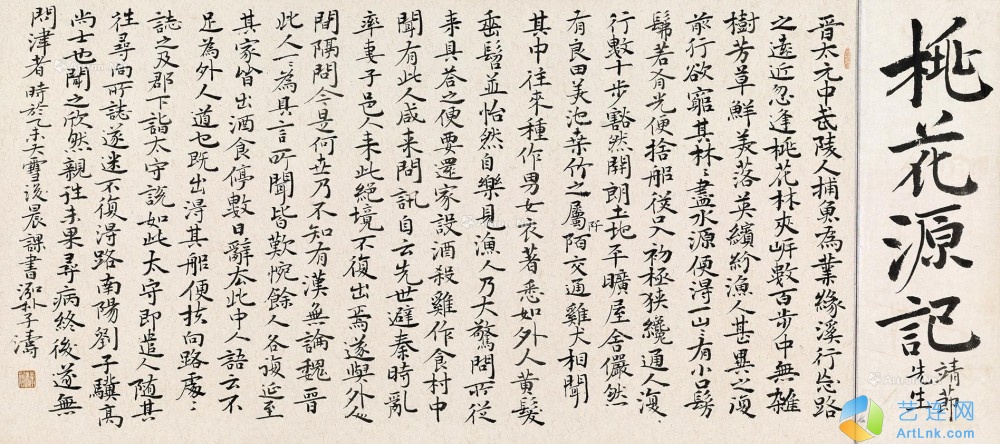 桃花源記
靖節
先生
晉太元中武陵人捕魚為業緣溪行忘路
之遠近忽逢桃花林夾岸數百步中無雜
樹芳草鮮美落英繽紛漁人甚異之復
前行欲窮其林〻盡水源便得一山〻有小口髣
髴若有光便捨船從口入初極狹纔通人復
行數十步豁然開朗土地平曠屋舍儼然
有良田美池桑竹之屬阡陌交通雞犬相聞
其中往來種作男女衣著悉如外人黃髮
垂髫並怡然自樂見漁人乃大驚問所從
来具答之便要還家設酒殺雞作食村中
聞有此人咸来問訊自云先世避秦時亂
率妻子邑人来此絕境不復出焉遂與外人
間隔問今是何世乃不知有漢無論魏晉
此人一〻為具言所聞皆歎惋餘人各復延至
其家皆出酒食停數日辭去此中人語云不
足為外人道也既出得其船便扶向路處〻
誌之及郡下詣太守說如此太守即遣人隨其
往尋向所誌遂迷不復得路南陽劉子驥高
尚士也聞之欣然親往未果尋病終後遂無
問津者時於乙未雪後晨課書
艺连网
ArtLnk.com